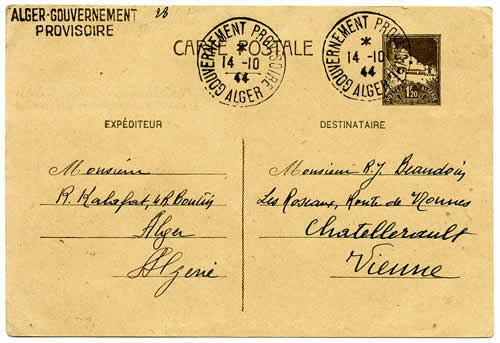 ALGER-GOUVERNEMENT
PROVISOIRE
28
CARTE POSTALE
GOUVERNEMENT PROVISOIRE
*
14 -10
44
ALGER
GOUVERNEMENT PROVISOIRE
*
14 -10
44
ALGER
1,20
EXPÉDITEUR
Monsieur
R. Kalafat, 4 R.
Alger
Algérie
DESTINATAIRE
Monsieur R.J. Beaudoin
Les Roseaux, Route de Nonnes
Chatellerault
Vienne